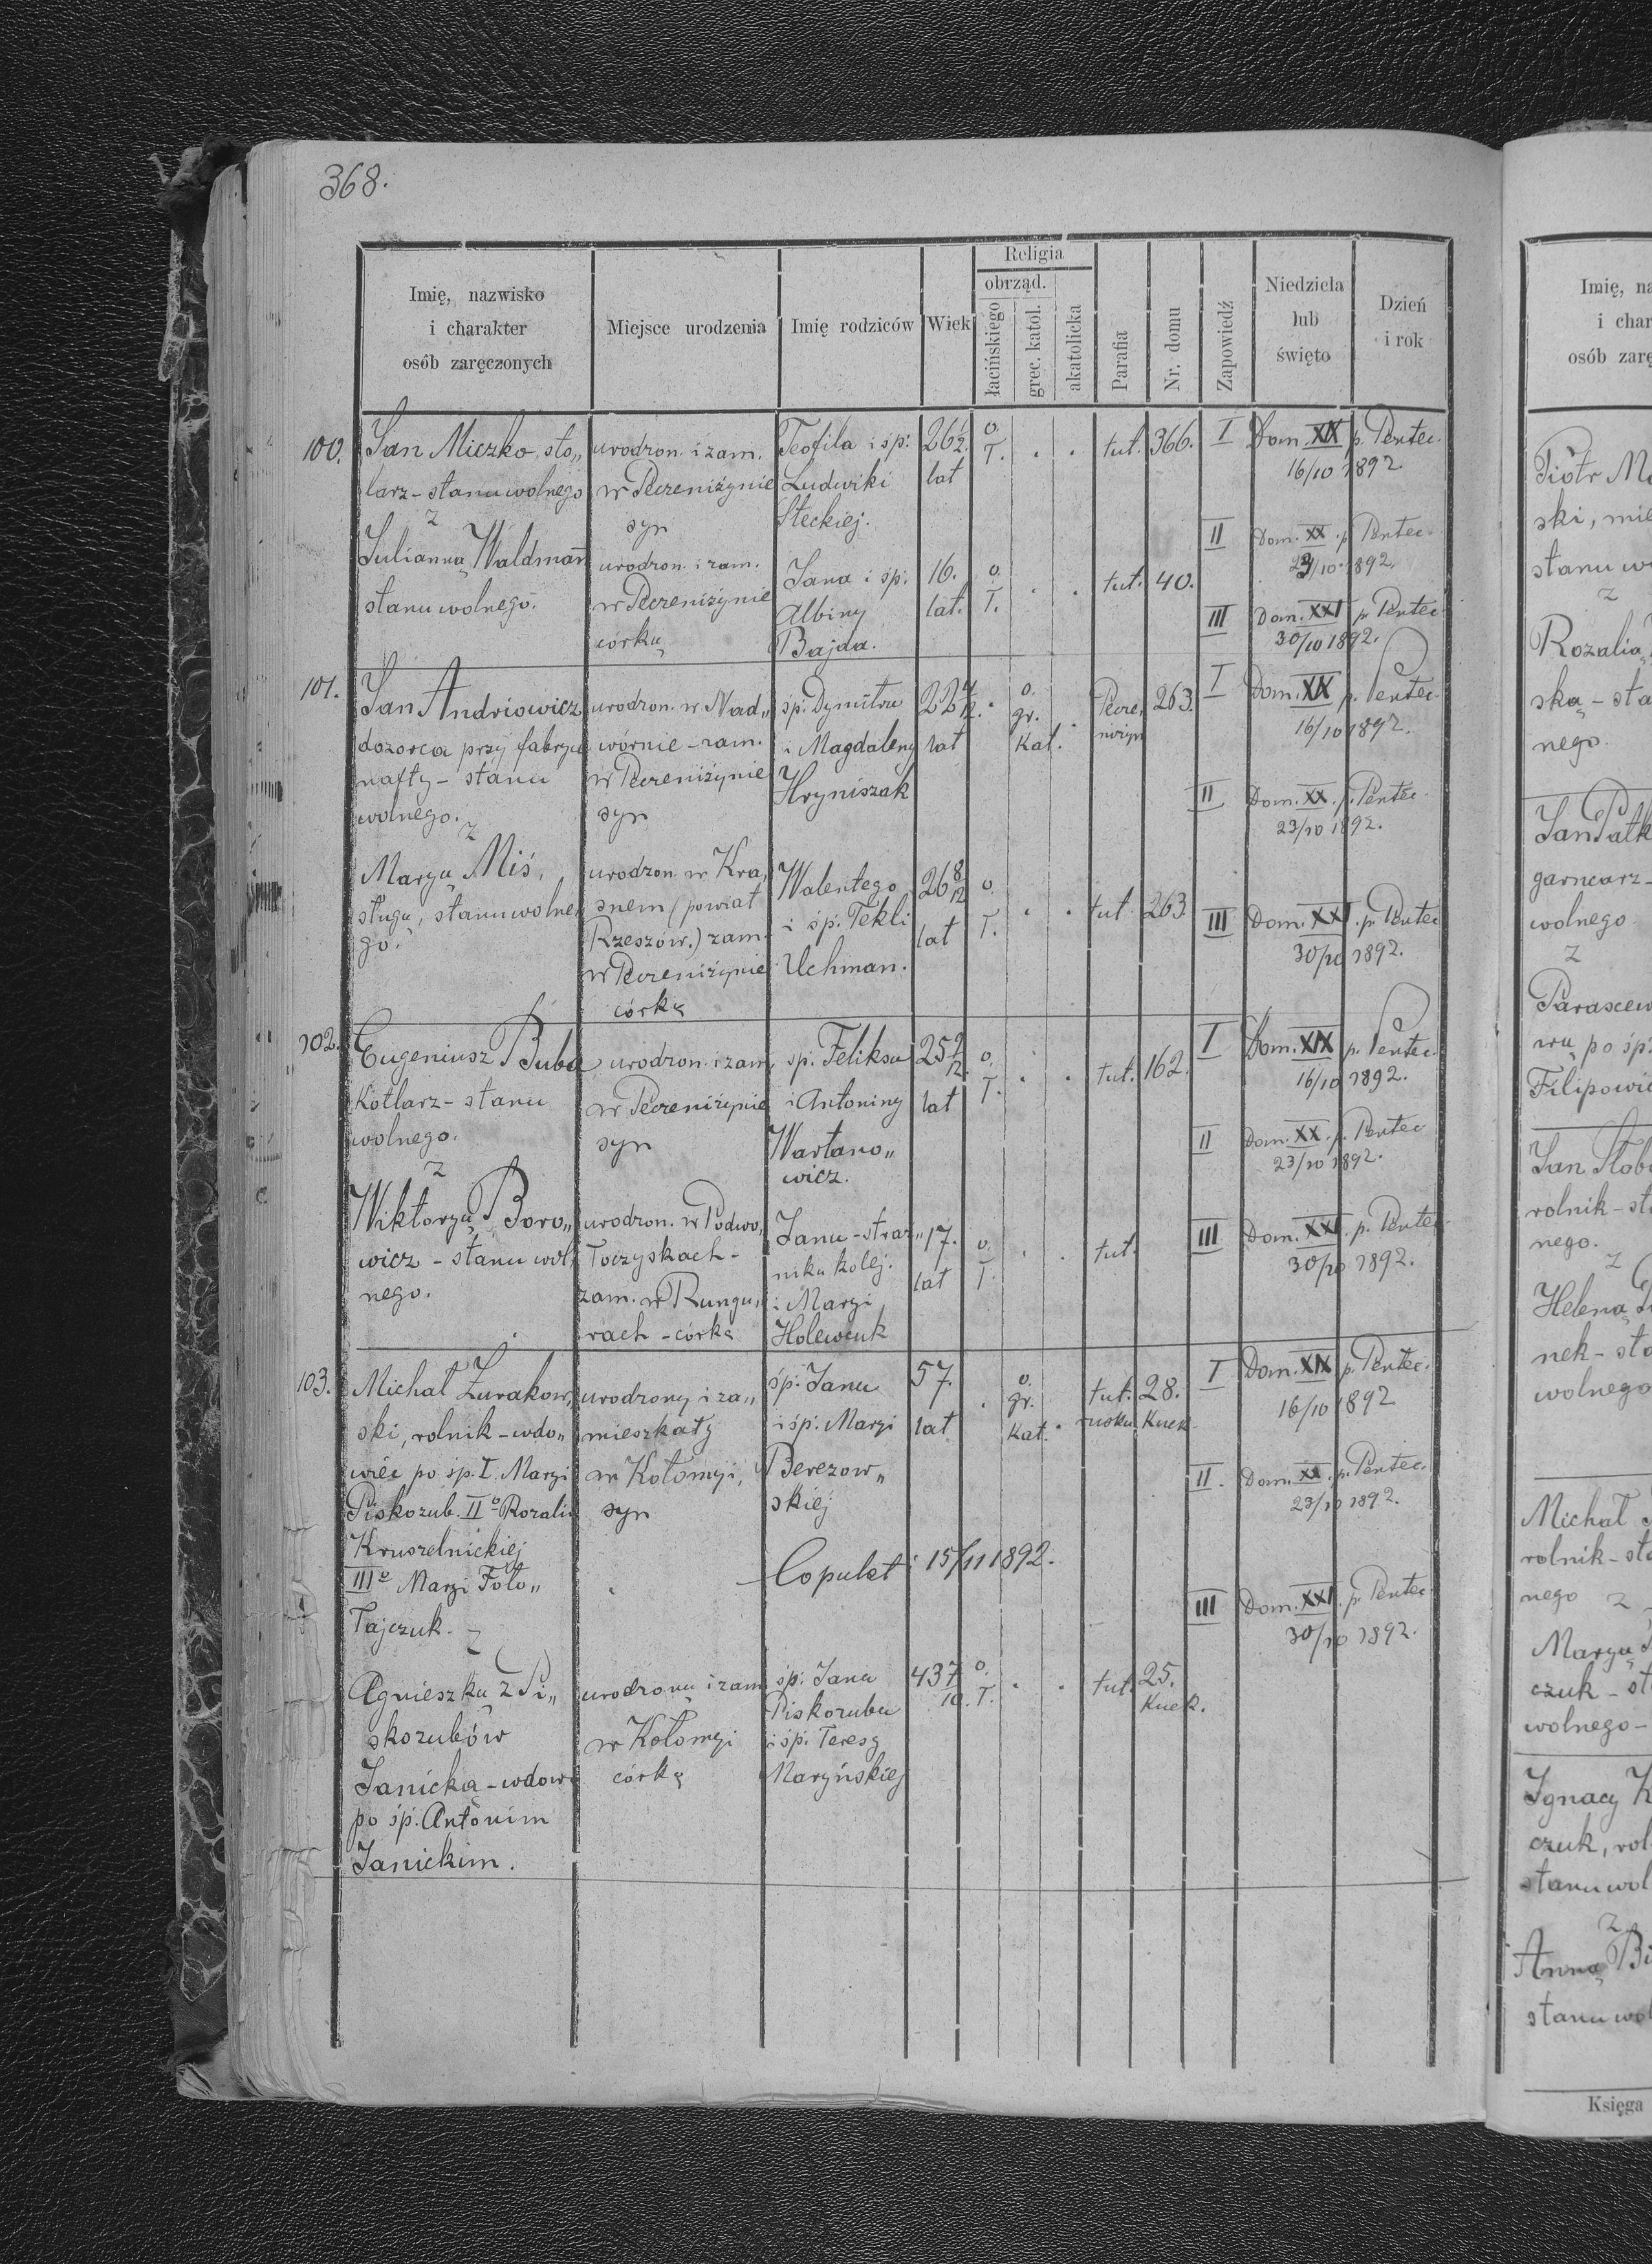 368.
Religia
obrząd.
Imię, nazwisko
i charakter
osób zaręczonych
Miejsce urodzenia
Imię rodziców
Wiek
łacińskiego
grec. katol.
akatolicka
Parafia
Nr. domu
Zapowiedź
Niedziela
lub
święto
Dzień
i rok
100.
Jan Miczko, sto„
larz - stanu wolnego
z
Julianną Waldmann
stanu wolnego.
urodzon. i zam.
w Peczeniżynie
syn
urodzon. i zam.
w Peczeniżynie
córką
Teofila i śp.
Ludwiki
Steckiej.
Jana i śp.
Albiny
Bajda.
26 1/2.
lat
16.
lat.
o.
ł.
o.
ł.
tut. 366.
tut. 40.
I Dom. XIX p. Pentec.
16/10 1892.
II Dom. XX. p. Pentec.
23/10. 1892.
III Dom. XXI p. Pentec.
30/10 1892.
101.
Jan Andriowicz
dozorca przy fabryce
nafty - stanu
wolnego.
z
Maryą Miś,
sługą, stanu wolne„
go.
urodzon. w Nad„
wórnie - zam.
w Peczeniżynie
syn
urodzon. w Kra„
snem (powiat
Rzeszów.) zam.
w Peczeniżynie
córką
śp. Dymitra
i Magdaleny
Hryniszak
Walentego
i śp. Tekli
Uchman.
22 4/12.
lat
26 8/12
lat
o.
gr.
Kat.
o.
ł.
Pecze„
niżyn
263.
tut. 263.
I Dom. XIX p. Pentec.
16/10 1892.
II Dom. XX. p. Pentec.
23/10 1892.
III Dom. XXI. p. Pentec
30/10 1892.
102.
Eugeniusz Buba
Kotlarz - stanu
wolnego.
z
Wiktoryą Boro„
wicz - stanu wol„
nego.
urodzon. i zam.
w Peczeniżynie
syn
urodzon. w Podwo„
łoczyskach -
zam. w Rungu„
rach - córką
śp. Feliksa
i Antoniny
Wartano„
wicz.
Jana - straż„
nika kolej.
i Maryi
Holewczuk
25 2/12.
lat
17.
lat
o.
ł.
o.
ł.
tut. 162.
tut.
I Dom. XIX p. Pentec.
16/10 1892.
II Dom. XX. p. Pentec
23/10 1892.
III Dom. XXI p. Pentec.
30/10 1892.
103.
Michał Żurakow„
ski, rolnik - wdo„
wiec po śp. I. Maryi
Piskozub. IIo Rozalii
Kruszelnickiej
IIIo Maryi Foto„
łajczuk.
z
Agnieszką z Pi„
skozubów
Janicką - wdową
po śp. Antonim
Janickim.
urodzony i za„
mieszkały
w Kołomyi,
syn
urodzoną i zam.
w Kołomyi
córką
śp. Jana
i śp. Maryi
Berezow„
skiej
Copulat: 15/11 1892.
śp. Jana
Piskozuba
i śp. Teresy
Maryńskiej
57.
lat
43 7/10.
o.
gr.
Kat.
o.
ł.
tut.
ruska
28.
Kuck.
tut. 25.
Kuck.
I Dom. XIX p. Pentec.
16/10 1892
II. Dom. XX. p. Pentec.
23/10 1892.
III Dom. XXI. p. Pentec.
30/10 1892.
Imię, na
i char
osób zarę
Piotr M
ski, mie
stanu wo
z
Rozalią
ską - sta
nego.
Jan Patk
garncarz -
wolnego
z
Parascew
wą po śp.
Filipowic
Jan Słobo
rolnik - st
nego.
z
Heleną
nek - sta
wolnego
Michał
rolnik - sta
nego z
Maryą
czuk - st
wolnego -
Ignacy K
czuk, rol
stanu wol
z
Anną Bi
stanu wol
Księga